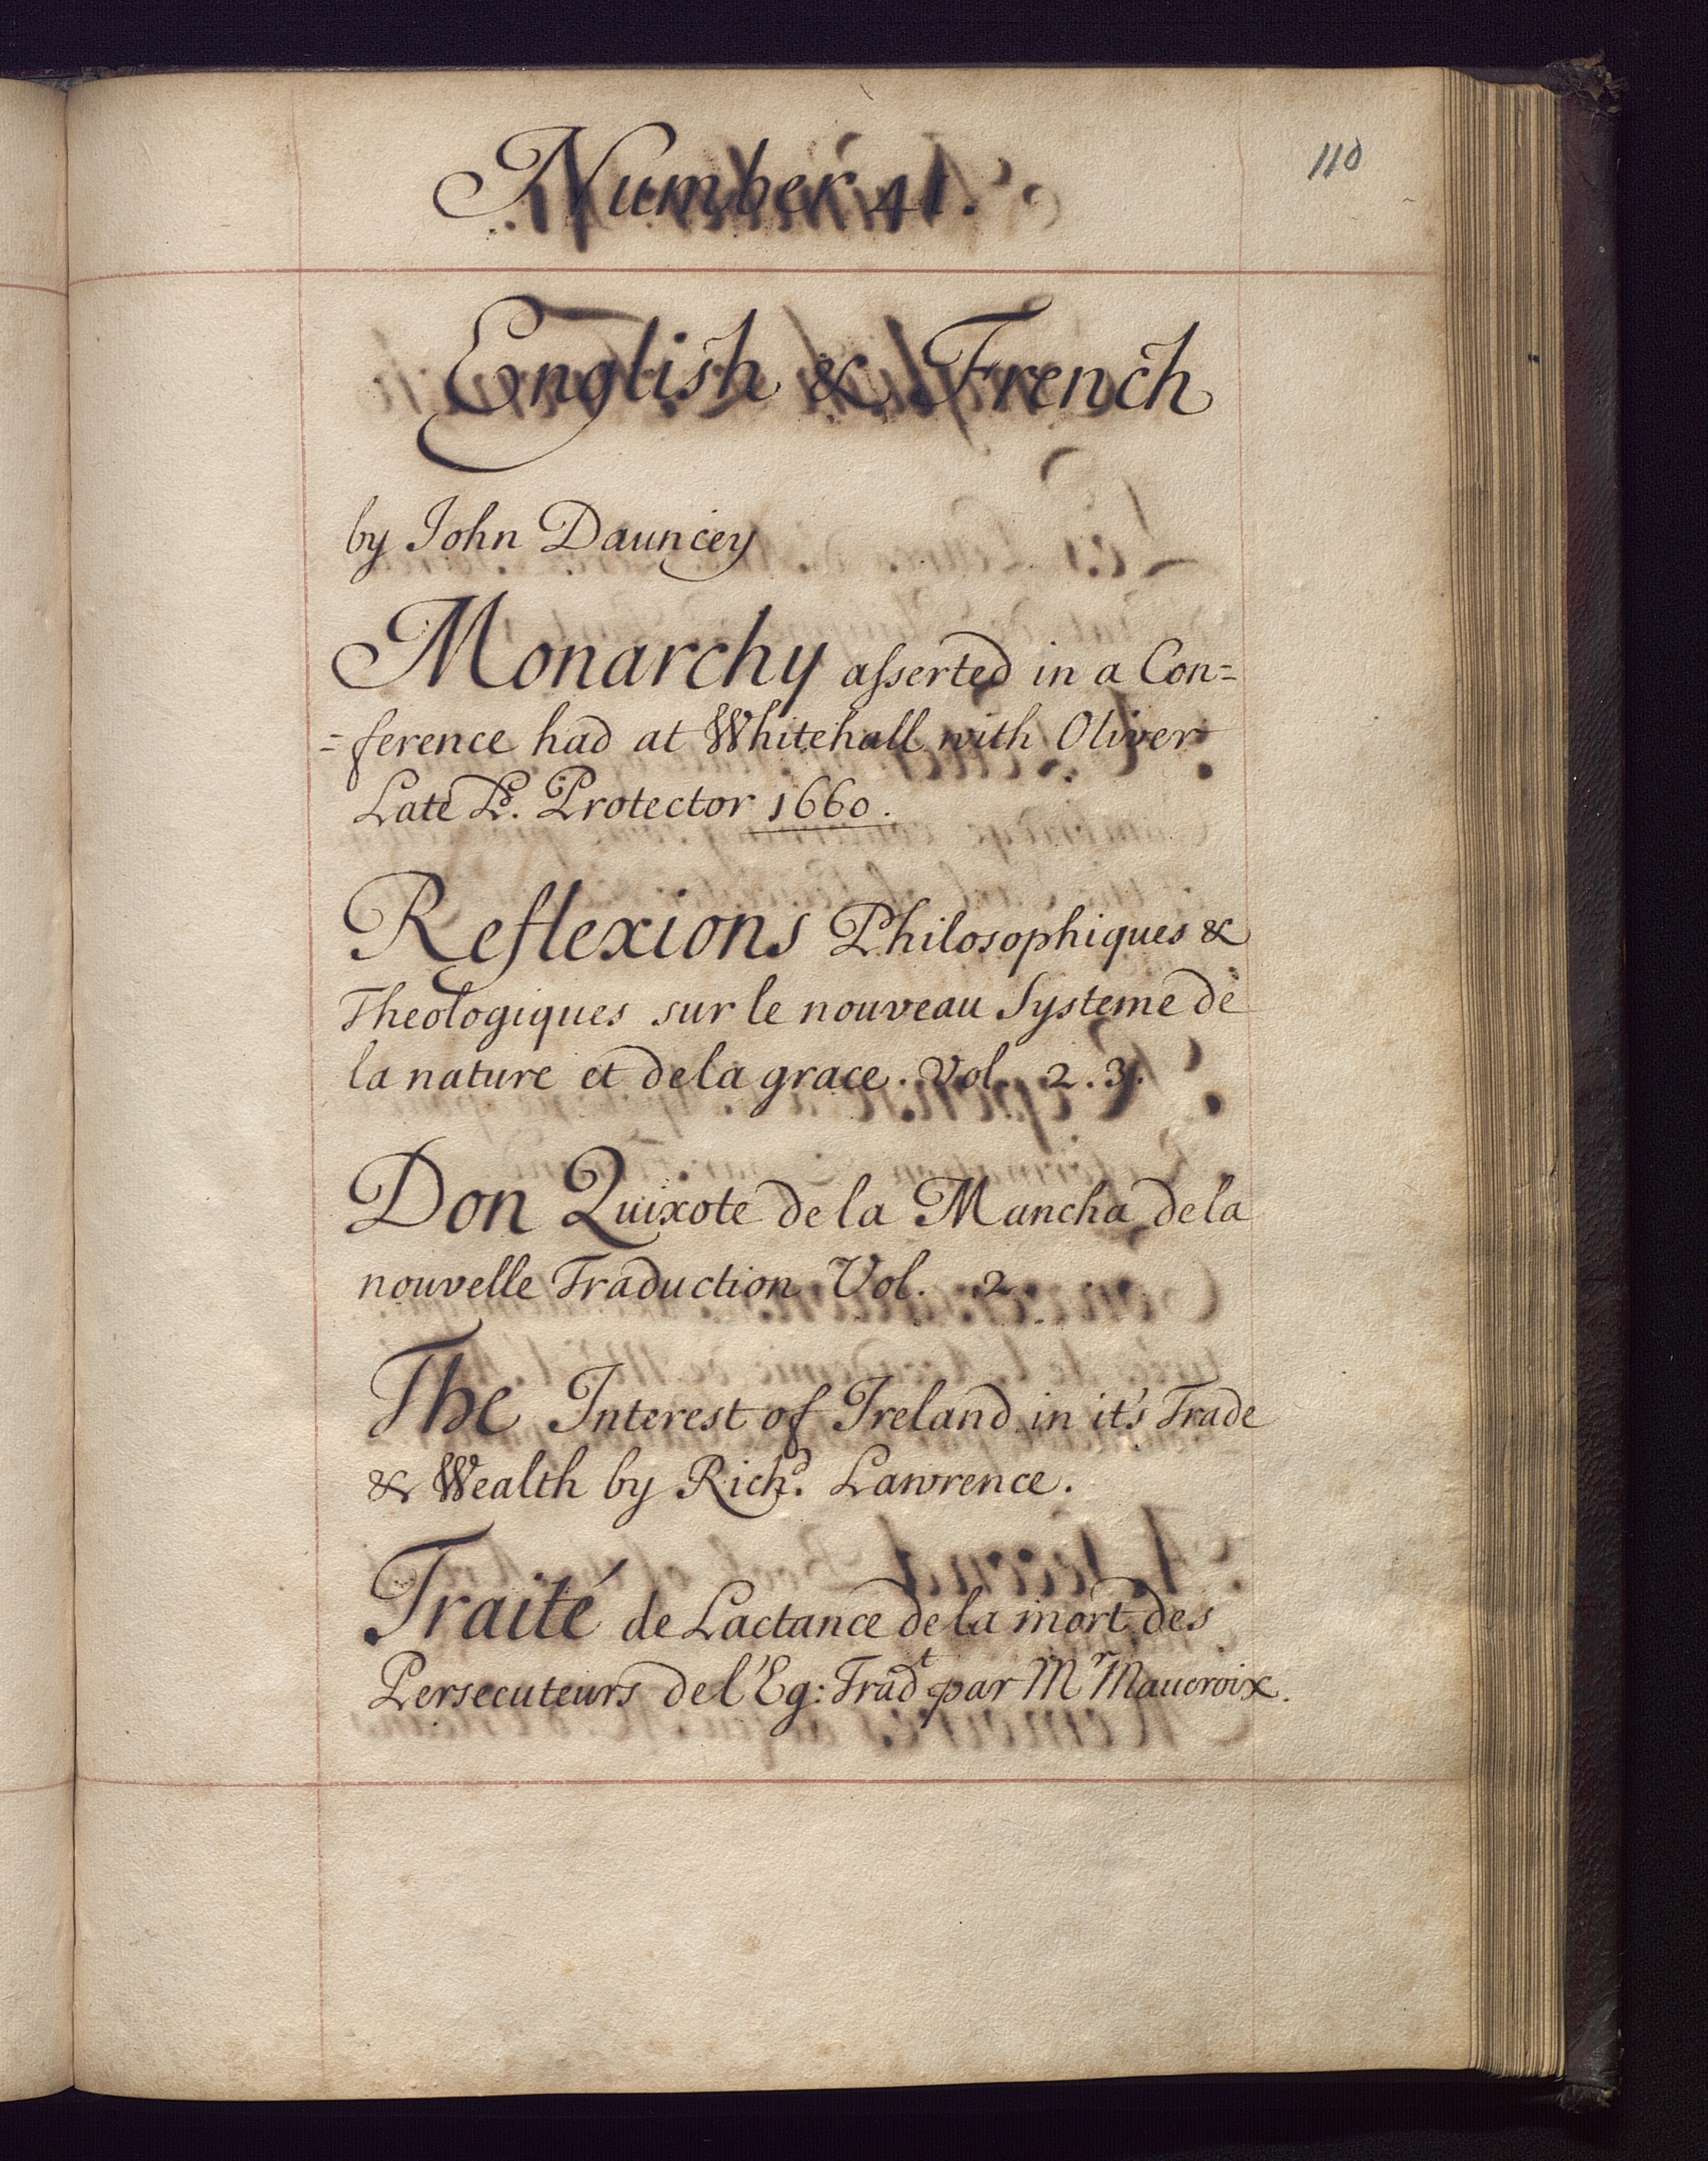 110
Number 41.
English & French
by John Dauncey
Monarchy asserted in a Con=
=ference had at Whitehall with Oliver
Late Ld. Protector 1660.
Reflexions Philosophiques &
Theologiques sur le nouveau Systeme de
la nature et de la grace. Vol. 2. 3.
Don Quixote de la Mancha de la
nouvelle Traduction Vol. 2
The Interest of Ireland in it's Trade
& Wealth by Richd. Lawrence.
Traité de Lactance de la mort des
Persecuteurs de l'Eg: Tradt par Mr Maucroix.